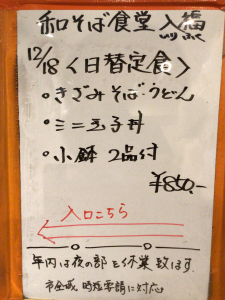 和そば食堂 入福
12/18 〈日替定食〉
・きざみそば・うどん
・ミニ玉子丼
・小鉢 2品付
¥850.-
入口こちら
年内は夜の部を休業致します。
市全域 時短要請に対応